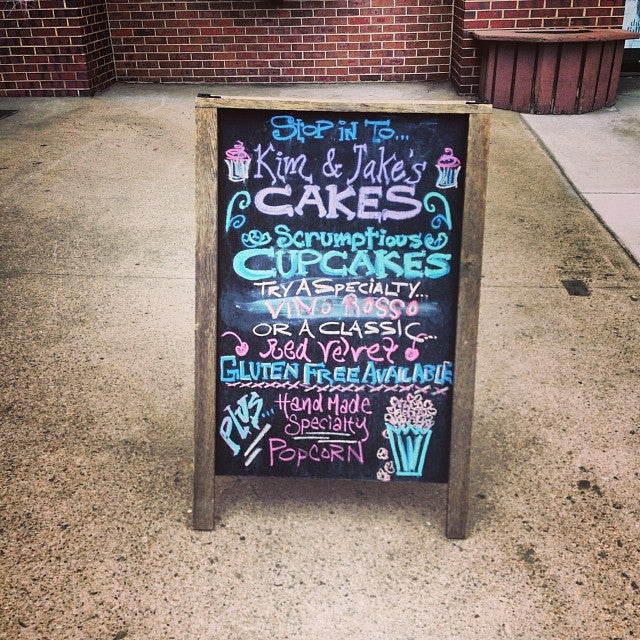 Stop in To...
Kim & Jake's
CAKES
Scrumptious
CUPCAKES
TRY A SPECIALTY...
VINO ROSSO
OR A CLASSIC...
Red Velvet
GLUTEN FREE AVAILABLE
PLUS... Hand Made
Specialty
POPCORN